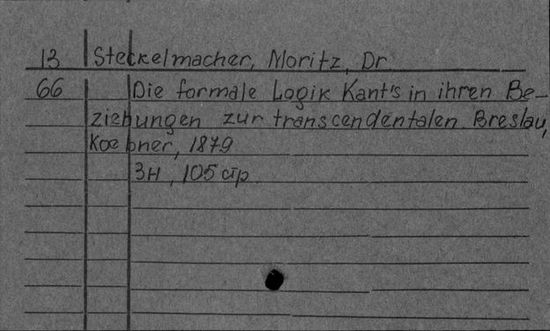 13 Steckelmacher, Moritz, Dr
66 Die formale Logik Kant's in ihren Be-
ziehungen zur transcendentalen. Breslau,
Koebner, 1879
3H, 105 стр.